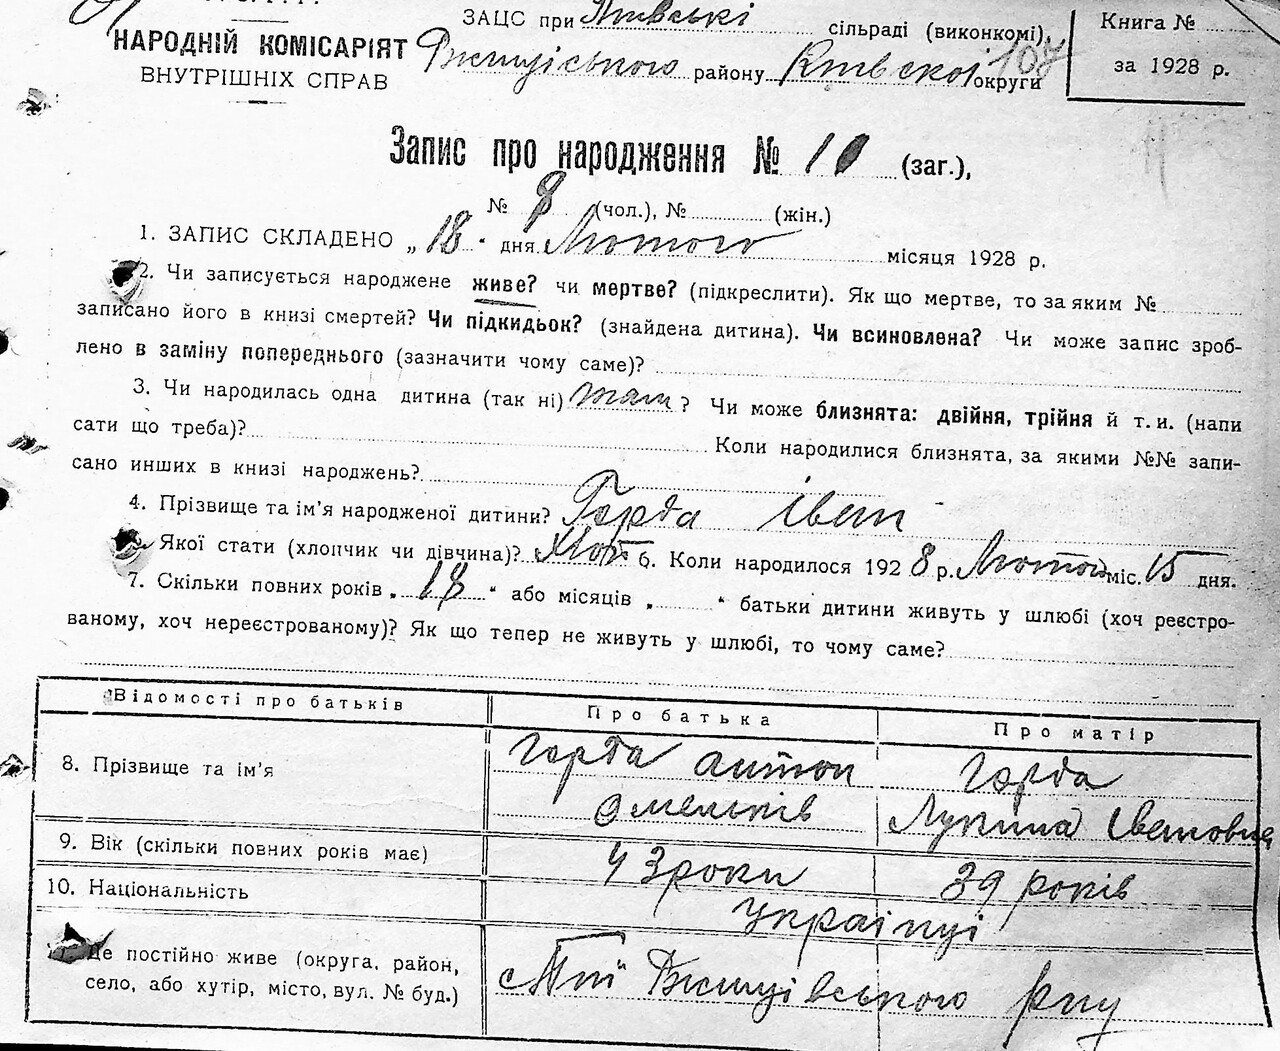 ЗАЦС при сільраді (виконкомі),
НАРОДНІЙ КОМІСАРІЯТ
ВНУТРІШНІХ СПРАВ
району округи
Книга №
за 1928 р.
107
Запис про народження № 10 (заг.),
№ 8 (чол.), № (жін.)
1. ЗАПИС СКЛАДЕНО „18" дня Лютого місяця 1928 р.
2. Чи записується народжене живе? чи мертве? (підкреслити). Як що мертве, то за яким №
записано його в книзі смертей? Чи підкидьок? (знайдена дитина). Чи всиновлена? Чи може запис зроб-
лено в заміну попереднього (зазначити чому саме)?
3. Чи народилась одна дитина (так ні) так? Чи може близнята: двійня, трійня й т. и. (напи
сати що треба)? Коли народилися близнята, за якими №№ запи-
сано инших в книзі народжень?
4. Прізвище та ім'я народженої дитини? Горда Іван
Якої стати (хлопчик чи дівчина)? хлоп 6. Коли народилося 1928 р. Лютого міс. 15 дня.
7. Скільки повних років „18" або місяців „ " батьки дитини живуть у шлюбі (хоч реєстро-
ваному, хоч нереєстрованому)? Як що тепер не живуть у шлюбі, то чому саме?
Відомості про батьків Про батька Про матір
8. Прізвище та ім'я Горда Антон Горда
Омельків Лукина Івановна
9. Вік (скільки повних років має) 43 роки 39 років
10. Національність українці
Де постійно живе (округа, район,
село, або хутір, місто, вул. № буд.)